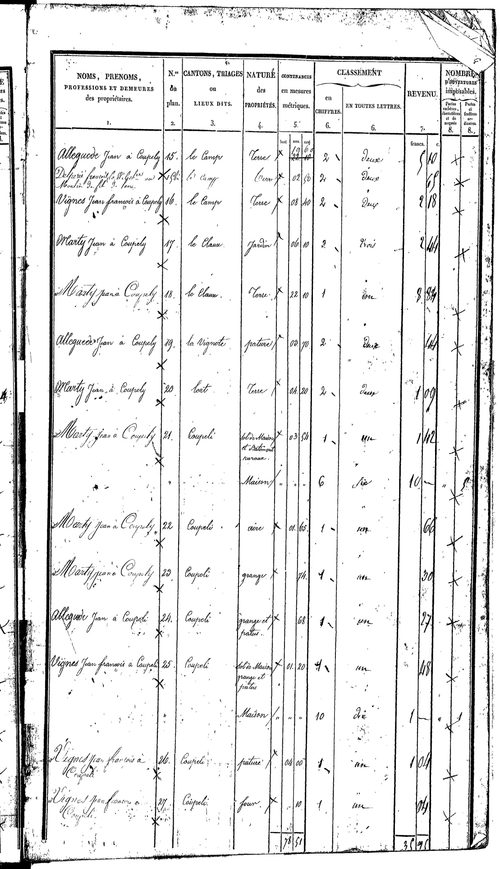 NOMS, PRENOMS, PROFESSIONS ET DEMEURES des propriétaires.
N.os du plan.
CANTONS, TRIAGES OU LIEUX DITS.
NATURE des PROPRIÉTÉS.
CONTENANCES en mesures métriques.
CLASSEMENT
en CHIFFRES.
EN TOUTES LETTRES.
REVENU.
NOMBRE D'OUVERTURES imposables.
1. 2. 3. 4. 5. 6. 6. 7. 8. 8.
francs. c.
Alleguede Jean à Coupely 15. le Camp Terre 2 deux 5 10
15bis le Camp 02 50 2 deux 65
Vignes Jean francois à Coupely 16. le Camp Terre 08 40 2 deux 2 18
Marty Jean à Coupely 17 le Claux jardin 06 10 2 2 44
Marty jean à Coupely 18 le Claux Terre 22 10 1 un 8 84
Alleguede Jean à Coupely 19. la Vignote pature 2 deux 44
Marty Jean à Coupely 20 Terre 04 20 2 deux 1 09
Marty jean à Coupely 21. Coupeli sol de Maison et Batiment ruraux. 03 54 1 un 1 42
Maison 6 six 10 —
Marty jean à Coupely 22 Coupeli aire 01 65 1 un 66
Marty jean à Coupely 23 Coupeli grange 74 1 un 30
Alleguede Jean à Coupeli 24. Coupeli grange et patus 68 1 un 27
Vignes Jean francois à Coupeli 25. Coupeli sol de Maison grange et patus 01 20 1 un 48
Maison 10 dix 1 — 1
Vignes jean francois à Coupeli 26. Coupeli pature 04 00 1 un 1 04
Vignes jean francois à Coupeli 27. Coupeli four 10 1 un 04
78 51
35 95